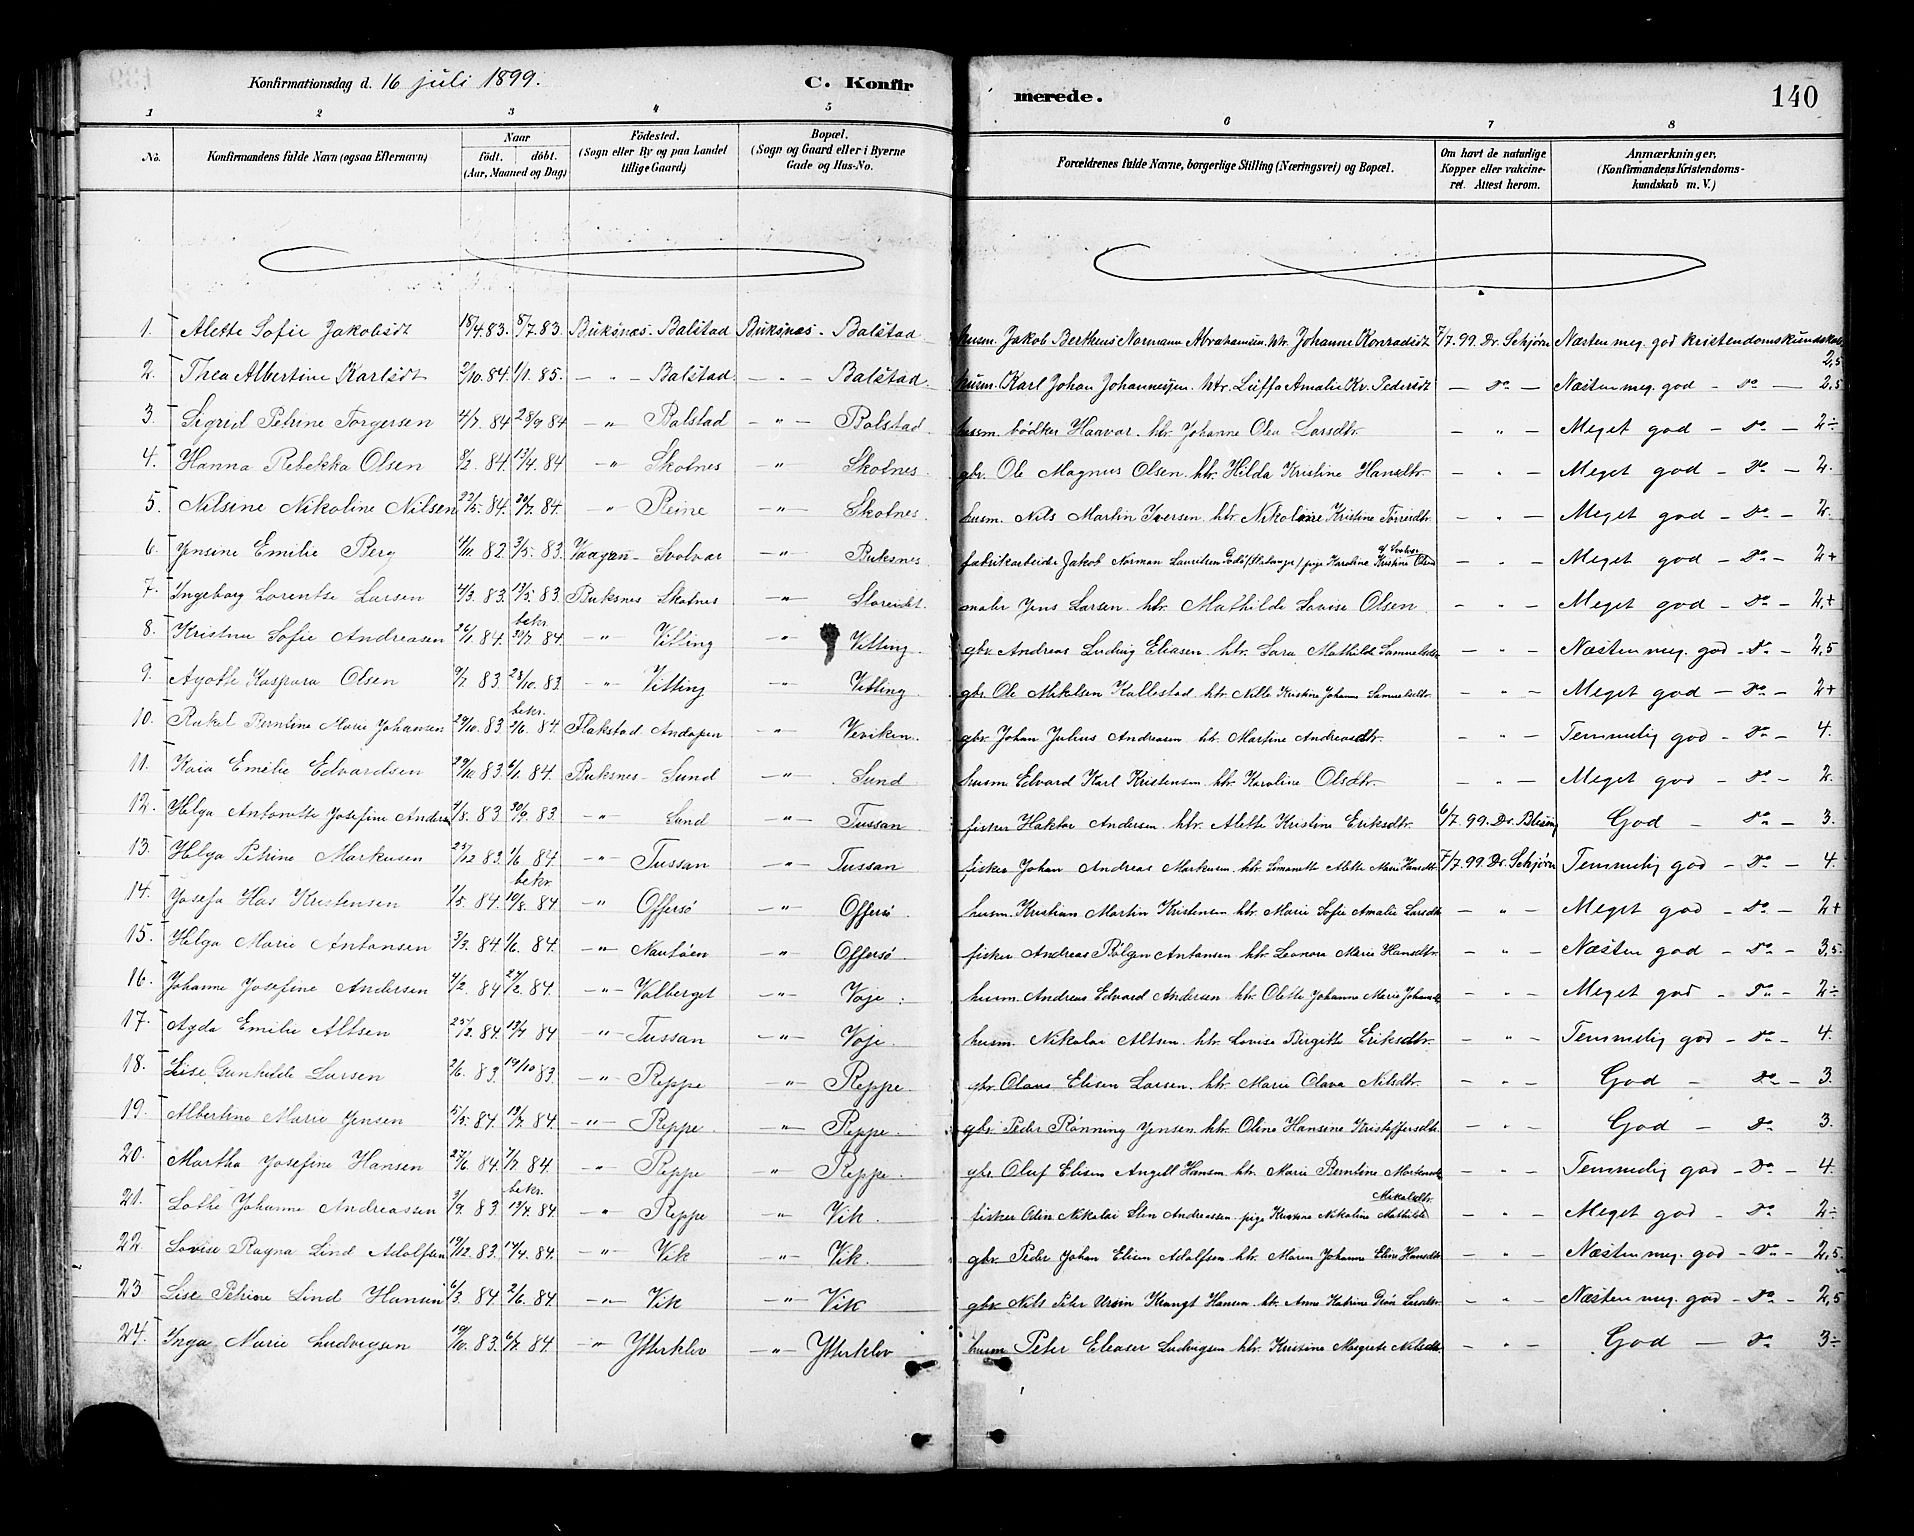 Konfirmationsdag d. 16 juli 1899. C. Konfir merede. 140
1 2 3 4 5 6 7 8
No. Konfirmandens fulde Navn (ogsaa Efternavn) Naar födt. döbt. (Aar, Maaned og Dag) Födested. (Sogn eller By og paa Landet tillige Gaard) Bopæl. (Sogn og Gaard eller i Byerne Gade og Hus-No. Forældrenes fulde Navne, borgerlige Stilling (Næringsvei) og Bopæl. Om havt de naturlige Kopper eller vakcineret. Attest herom. Anmærkninger. (Konfirmandens Kristendomskundskab m. V.)
1. Alette Sofie Jakobsdt 18/4.83. 8/7.83. Buksnæs. Balstad Buksnæs. Balstad. husm. Jakob Bertheus Normann Abrahamsen. htr. Johanne Konradsdt 7/7.99. Dr. Schjørn Næsten meg. god kristendomskundskab 2,5
2. Thea Albertine Karlsdt 2/10.84. 1/1.85. — " — Balstad. — " — Balstad. husm. Karl Johan Johannessen. htr. Luffa Amalie Kr. Pedersdt — do — Næsten meg. god — do — 2,5
3. Sigrid Petrine Torgersen 4/7.84 28/9.84 — " — Balstad — " — Balstad husm. bødker Haavar. htr. Johanne Olea Larsdtr. — " — Meget god — do — 2÷
4. Hanna Rebekka Olsen 8/2.84. 13/4.84 — " — Skotnes — " — Skotnes. gbr. Ole Magnus Olsen. htr. Hilda Kristine Hansdtr — " — Meget god — do — 2.
5. Nilsine Nikoline Nilsen 22/5.84. 20/7.84. " — Reine — " — Skotnes. husm. Nils Martin Iversen. htr. Nikoline Kristine Torresdtr. — " — Meget god — do — 2.
6. Jensine Emilie Berg 4/11 82. 3/5.83. Vaagan — Svolvær — " — Buksnes. fabrikarbeider Jakob Norman Lauritsen pige Karoline Kristine Olsen af Svolvær — " — Meget god — do — 2+
7. Ingeborg Lorentse Larsen 4/3.83. 13/5.83. Buksnes Skotnes — " — Storeidet. maler Jens Larsen. htr. Mathilde Lovise Olsen — " — Meget god — do — 2+
8. Kristine Sofie Andreasen 26/1.84. bekr. 27/7.84. — " — Vitting — " — Vitting. gbr. Andreas Ludvig Eliasen. htr. Sara Mathilde Samuelsdtr — " — Næsten meg. god — do — 2,5
9. Agothe Kaspara Olsen 9/7.83 28/10.83. — " — Vitting — " — Vitting. gbr. Ole Mikelsen Kallestad htr. Nille Kristine Johanna Samuelsdtr. — " — Meget god — do — 2+
10. Rakel Berntine Marie Johansen 29/10.83 bekr. 2/6.84. Flakstad Andopen — " — Veviken. gbr. Johan Julius Andreasen htr. Martine Andreasdtr. — " — Temmelig god — do — 4.
11. Kaia Emilie Edvardsen 29/10 83. 6/1.84. Buksnes — Sund — " — Sund husm. Edvard Karl Kristensen htr. Karoline Olsdtr. — " — Meget god — do — 2.
12. Helga Antonette Josefine Anders 1/8.83 30/9.83. — " — Sund — " — Tussan fisker Haktor Andersen. htr. Alette Kristine Eriksdtr. 6/7.99. Dr. God — do — 3.
13. Helga Petrine Markusen 27/12 83. 1/6 84 — " — Tussan — " — Tussan fisker Johan Andreas Markusen. htr. Simanette Alette Marie Hansdtr. 7/7.99. Dr. Schjørn Temmelig god — do — 4
14. Josefa Has Kristensen 1/5.84. bekr. 10/8.84. — " — Offersø — " — Offersø. husm. Kristian Martin Kristensen. htr. Marie Sofie Amalie Larsdtr — " — Meget god — do — 2+
15. Helga Marie Antonsen 3/3.84. 1/6.84. — " — Nautøen — " — Offersø. fisker Andreas Bølgen Antonsen. htr. Leonora Marie Hansdtr. — " — Næsten god — do — 3,5
16. Johanne Josefine Andersen 1/2.84 27/2.84. — " — Valberget — " — Voje. husm. Andreas Edvard Andersen. htr. Olette Johanne Marie — " — Meget god — do — 2÷
17. Agda Emilie Altsen 25/2.84 13/4 84 — " — Tussan — " — Voje. husm. Nikolai Altsen. htr. Lovise Birgitte Eriksdtr. — " — Temmelig god — do — 4.
18. Lise Gunhilde Larsen 2/6.83. 19/10 83. — " — Reppe — " — Reppe. gbr. Olaus Elisen Larsen. htr. Marie Olava Nilsdtr. — " — God — do — 3.
19. Albertine Marie Jensen 5/5.84. 13/7.84 — " — Reppe. — " — Reppe. gbr. Peder Rønning Jensen. htr. Oline Hansine Kristoffersdtr. — " — God — do 3.
20. Martha Josefine Hansen 27/6.84. 7/7.84 — " — Reppe — " — Reppe. gbr. Oluf Elisen Angell Hansen. htr. Marie Berntine — " — Temmelig god — do — 4.
21. Lothe Johanne Andreassen 3/9.83 bekr. 13/4.84. — " — Reppe — " — Vik. fisker Odin Nikolai Sten Andreassen. pige Kristine Nikoline Mathilde Mikalsdtr. — " — Meget god — do 2÷
22. Lovise Ragna Lind Adolfsen 19/12.83. 14/4.84. — " — Vik — " — Vik. gbr. Peder Johan Elisen Adolfsen htr. Maren Johanne Elise Hansdtr — " — Næsten meg. god — do — 2,5
23 Lise Petrine Lind Hansen 6/3.84. 2/6.84. — " — Vik — " — Vik gbr. Nils Peter Ursin Hansen. htr. Anne Katrine Larsdtr. — " — Næsten meg. god — do — 2,5
24. Inga Marie Ludvigsen 19/10.83. 6/7.84. — " — Ytterklev — " — Ytterklev husm Peter Eleaser Ludvigsen htr. Kristine Margrete Nilsdtr. — " — God — do 3÷